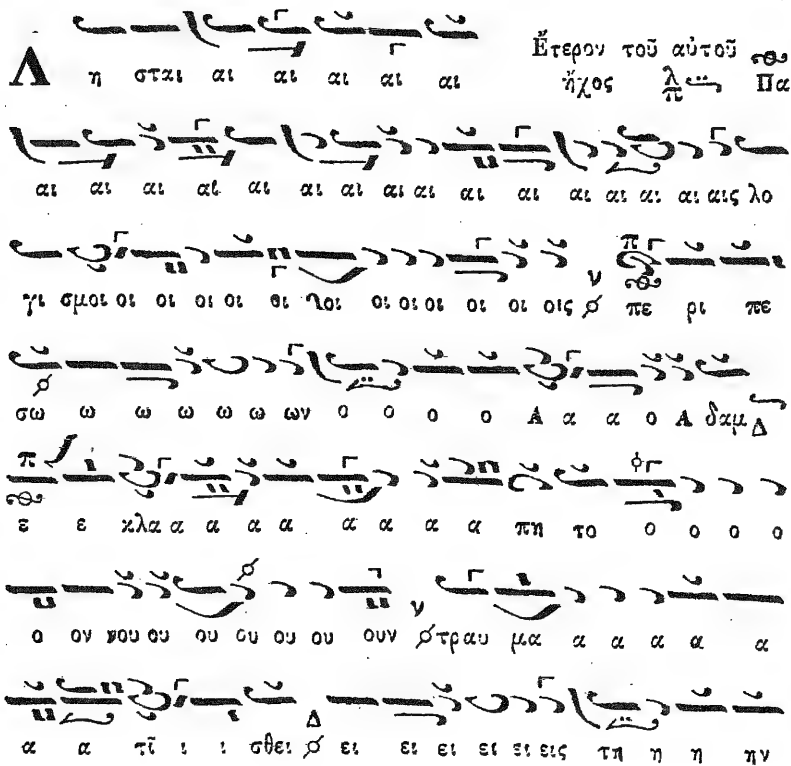 Ἕτερον τοῦ αὐτοῦ
ἦχος λ π Πα
Λ η σται αι αι αι αι αι
αι αι αι αι αι αι αι αι αι αι αι αι αι αι αι αις λο
γι σμοι οι οι οι οι οι λοι οι οι οι οι οι οις ν πε ρι πε
σω ω ω ω ω ω ων ο ο ο ο Α α α ο Α δαμ Δ
ε ε κλα α α α α α α α α πη το ο ο ο ο
ο ον νου ου ου ου ου ου ουν ν τραυ μα α α α α α
α α τῖ ι ι σθει Δ ει ει ει ει ει εις τη η η ην